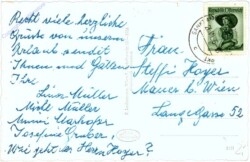 Recht viele herzliche
Grüsse von unserem
Urlaub sendet
Ihnen und Gatten
Ihre
Linor Müller
Midl Müller
Anni Mayrhofer
Josefine Gruber
Wie geht es Herrn Hoyer?
Frau
Steffi Hoyer
Mauer b. Wien
Lange Gasse 52